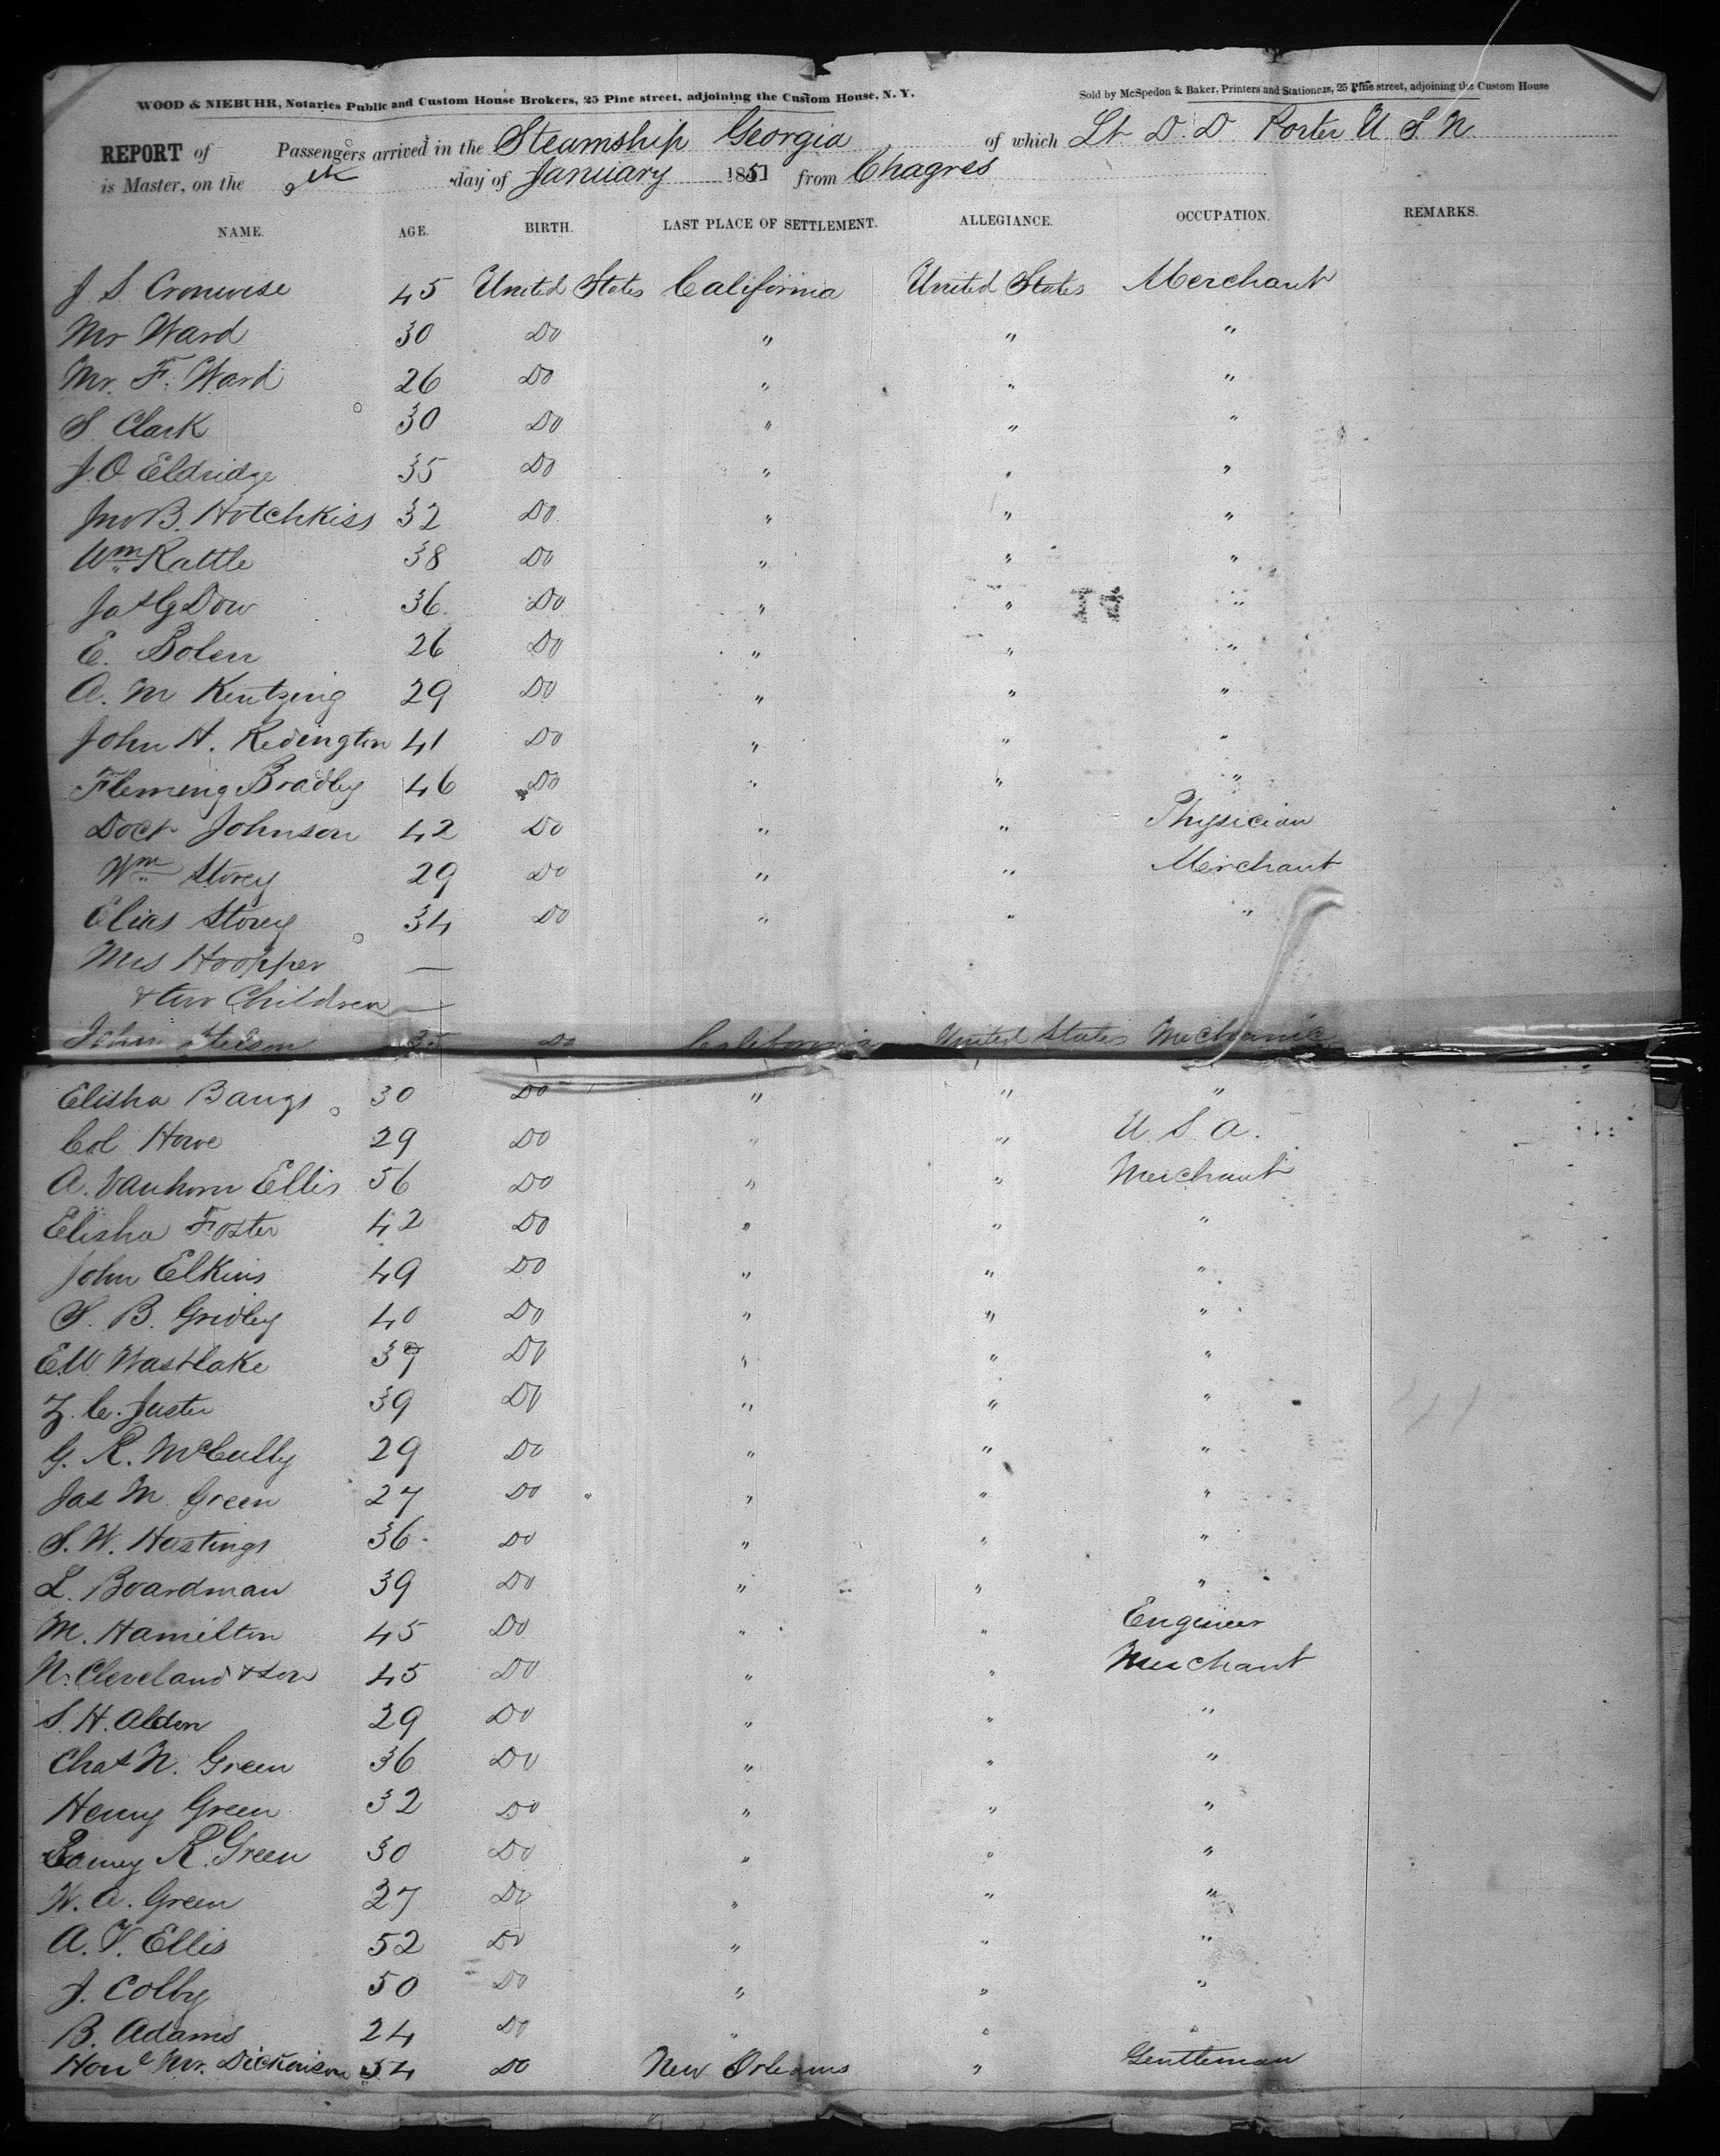 WOOD & NIEBUHR, Notaries Public and Custom House Brokers, 25 Pine street, adjoining the Custom House, N. Y.
Sold by McSpedon & Baker, Printers and Stationers, 25 Pine street, adjoining the Custom House
REPORT of Passengers arrived in the Steamship Georgia of which Lt D. D. Porter U S N
is Master, on the 9th day of January 1851 from Chagres
NAME. AGE. BIRTH. LAST PLACE OF SETTLEMENT. ALLEGIANCE. OCCUPATION. REMARKS.
J S Cronwise 45 United States California United States Merchant
Mr Ward 30 Do " " "
Mr. F. Ward 26 Do " " "
S. Clark 30 Do " " "
J. O. Eldridge 35 Do " " "
Jno B. Hotchkiss 32 Do " " "
Wm Rattle 38 Do " " "
Jas G Dow 36 Do " " "
E. Bolen 26 Do " " "
A. M Kentzing 29 Do " " "
John H. Redington 41 Do " " "
Fleming Bradley 46 Do " " "
Doct Johnson 42 Do " " Physician
Wm Storey 29 Do " " Merchant
Elias Storey 34 Do " " "
Mrs Hoopper —
& two Children —
John 35 Do California United States Mechanic
Elisha Bangs 30 Do " " "
Col Howe 29 Do " " U. S. A.
A. Vanhorn Ellis 56 Do " " Merchant
Elisha Foster 42 Do " " "
John Elkins 49 Do " " "
S. B. Gridley 40 Do " " "
E W Wastlake 39 Do " " "
Z. C. Juster 39 Do " " "
G. R. McCully 29 Do " " "
Jas M. Green 27 Do " " "
S. W. Hastings 36 Do " " "
L. Boardman 39 Do " " "
M. Hamilton 45 Do " " Engineer
N. Cleveland & Son 45 Do " " Merchant
S. H. Alden 29 Do " " "
Chas N. Green 36 Do " " "
Henry Green 32 Do " " "
R. Green 30 Do " " "
W. A. Green 27 Do " " "
A. V. Ellis 52 Do " " "
J. Colby 50 Do " " "
B. Adams 24 Do " " "
Honl Mr. Dickinson 54 Do New Orleans " Gentleman